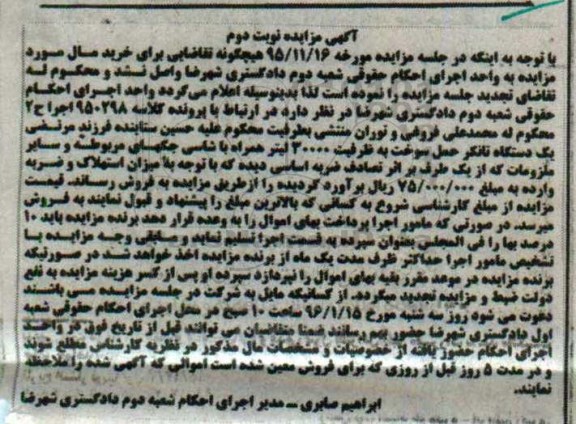 آگهی مزایده نوبت دوم
با توجه به اینکه در جلسه مزایده مورخه ۹۵/۱۱/۱۶ هیچگونه تقاضایی برای خرید مال مورد
مزایده به واحد اجرای احکام حقوقی شعبه دوم دادگستری شهرضا واصل نشد و محکوم له
تقاضای تجدید جلسه مزایده را نموده است لذا بدینوسیله اعلام می‌گردد واحد اجرای احکام
حقوقی شعبه دوم دادگستری شهرضا در نظر دارد در ارتباط با پرونده کلاسه ۹۵۰۲۹۸ اجرا ح۲
محکوم له محمدعلی فروغی و توران منتشی بطرفیت محکوم علیه حسین ستاینده فرزند مرتضی
یک دستگاه تانکر حمل سوخت به ظرفیت ۳۰۰۰۰ لیتر همراه با شاسی جکهای مربوطه و سایر
ملزومات که از یک طرف بر اثر تصادف ضربه اساسی دیده که با توجه به میزان استهلاک و ضربه
وارده به مبلغ ۷۵/۰۰۰/۰۰۰ ریال برآورد گردیده را از طریق مزایده به فروش رساند. قیمت
مزایده از مبلغ کارشناسی شروع به کسانی که بالاترین مبلغ را پیشنهاد و قبول نمایند به فروش
میرسد. در صورتی که مامور اجرا پرداخت بهای اموال را به وعده قرار دهد برنده مزایده باید ۱۰
درصد بها را فی المجلس بعنوان سپرده به قسمت اجرا تسلیم نماید و مابقی وجه مزایده با
تشخیص مامور اجرا حداکثر ظرف مدت یک ماه از برنده مزایده اخذ خواهد شد در صورتیکه
برنده مزایده در موعد مقرر بقیه بهای اموال را نپردازد سپرده او پس از کسر هزینه مزایده به نفع
دولت ضبط و مزایده تجدید میگردد. از کسانیکه مایل به شرکت در جلسه مزایده می باشند
دعوت می شود روز سه شنبه مورخ ۹۶/۱/۱۵ ساعت ۱۰ صبح در محل اجرای احکام حقوقی شعبه
اول دادگستری شهرضا حضور بهم رسانند ضمنا متقاضیان می توانند قبل از تاریخ فوق در واحد
اجرای احکام حضور یافته از خصوصیات و مشخصات مال مذکور در نظریه کارشناس مطلع شوند
و در مدت ۵ روز قبل از روزی که برای فروش معین شده است اموالی که آگهی شده را ملاحظه
نمایند.
ابراهیم صابری – مدیر اجرای احکام شعبه دوم دادگستری شهرضا